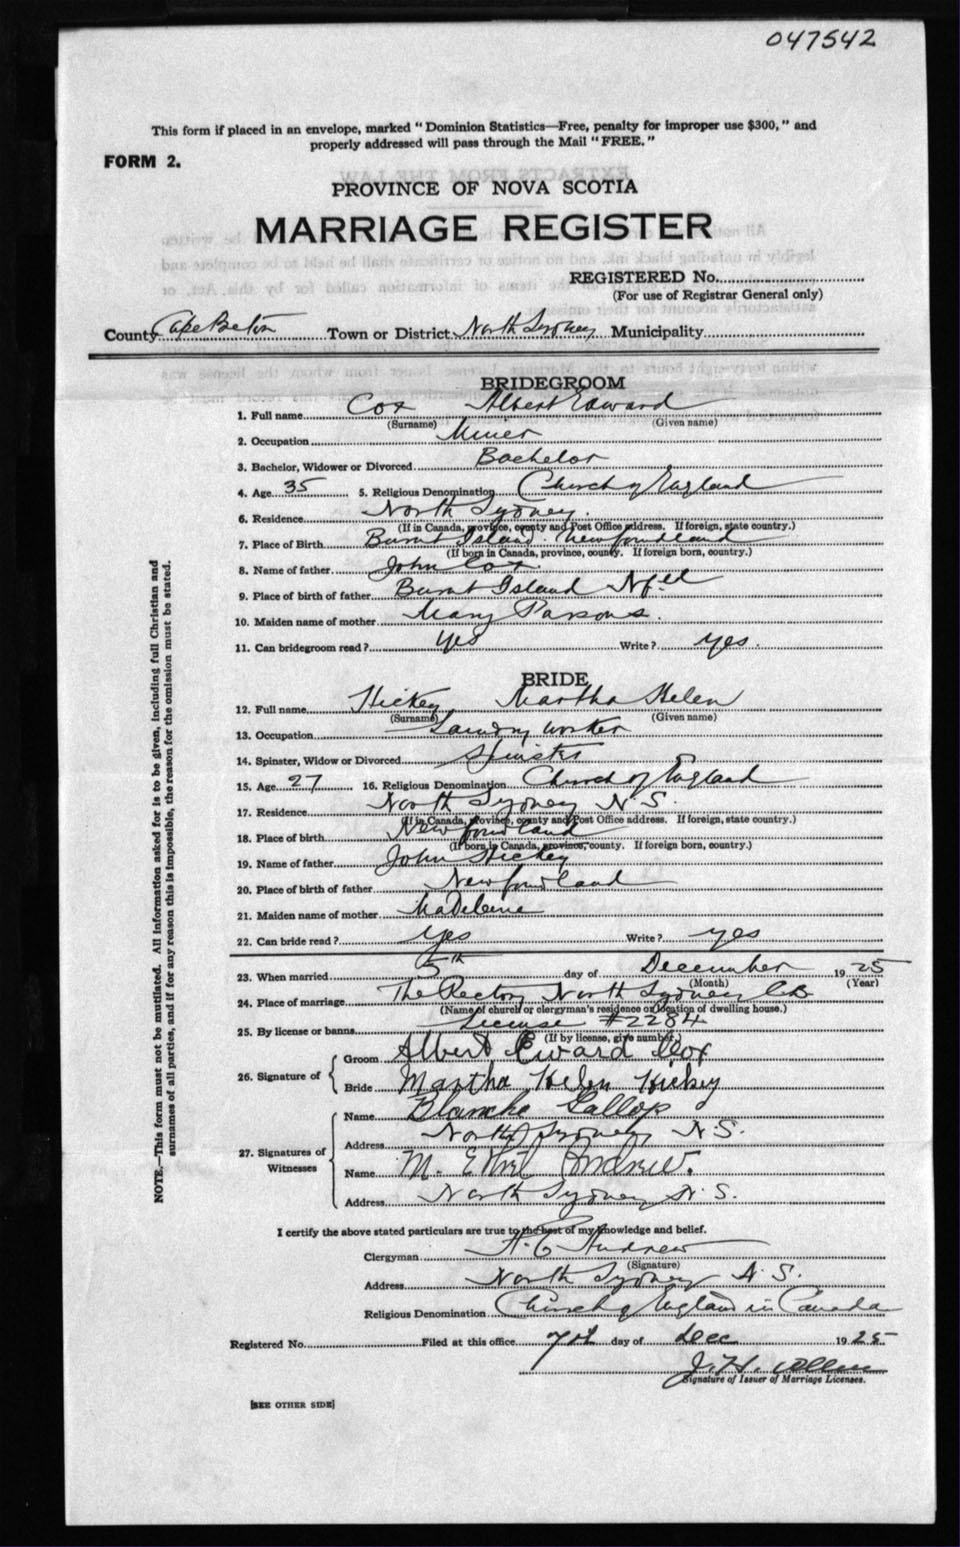 047542
This form if placed in an envelope, marked "Dominion Statistics—Free, penalty for improper use $300," and
properly addressed will pass through the Mail "FREE."
FORM 2.
PROVINCE OF NOVA SCOTIA
MARRIAGE REGISTER
REGISTERED No.
(For use of Registrar General only)
County Cape Breton Town or District North Sydney Municipality
BRIDEGROOM
1. Full name Cox Albert Edward
(Surname) (Given name)
2. Occupation Miner
3. Bachelor, Widower or Divorced Bachelor
4. Age 35 5. Religious Denomination Church of England
6. Residence North Sydney.
(If in Canada, province, county and Post Office address. If foreign, state country.)
7. Place of Birth Burnt Island. Newfoundland
(If born in Canada, province, county. If foreign born, country.)
8. Name of father John Cox.
9. Place of birth of father Burnt Island Nfld
10. Maiden name of mother Mary Parsons.
11. Can bridegroom read? Yes Write? yes.
BRIDE
12. Full name Hickey Martha Helen
(Surname) (Given name)
13. Occupation Laundry worker
14. Spinster, Widow or Divorced Spinster
15. Age 27 16. Religious Denomination Church of England
17. Residence North Sydney N.S.
(If in Canada, province, county and Post Office address. If foreign, state country.)
18. Place of birth Newfoundland
(If born in Canada, province, county. If foreign born, country.)
19. Name of father John Hickey
20. Place of birth of father Newfoundland
21. Maiden name of mother Madeleine
22. Can bride read? Yes Write? yes
23. When married 5th day of December 1925
(Month) (Year)
24. Place of marriage The Rectory North Sydney C.B
(Name of church or clergyman's residence or location of dwelling house.)
25. By license or banns License #2284
(If by license, give number.)
26. Signature of
Groom Albert Edward Cox
Bride Martha Helen Hickey
27. Signatures of Witnesses
Name Blanche Gallop
Address North Sydney N.S.
Name M. Ethel Andrew.
Address North Sydney N.S.
I certify the above stated particulars are true to the best of my knowledge and belief.
Clergyman A. C Andrew
(Signature)
Address North Sydney N.S.
Religious Denomination Church of England in Canada
Registered No. Filed at this office 7th day of Dec 1925
J. H.
Signature of Issuer of Marriage Licenses.
[SEE OTHER SIDE]
NOTE.—This form must not be mutilated. All information asked for is to be given, including full Christian and
surnames of all parties, and if for any reason this is impossible, the reason for the omission must be stated.